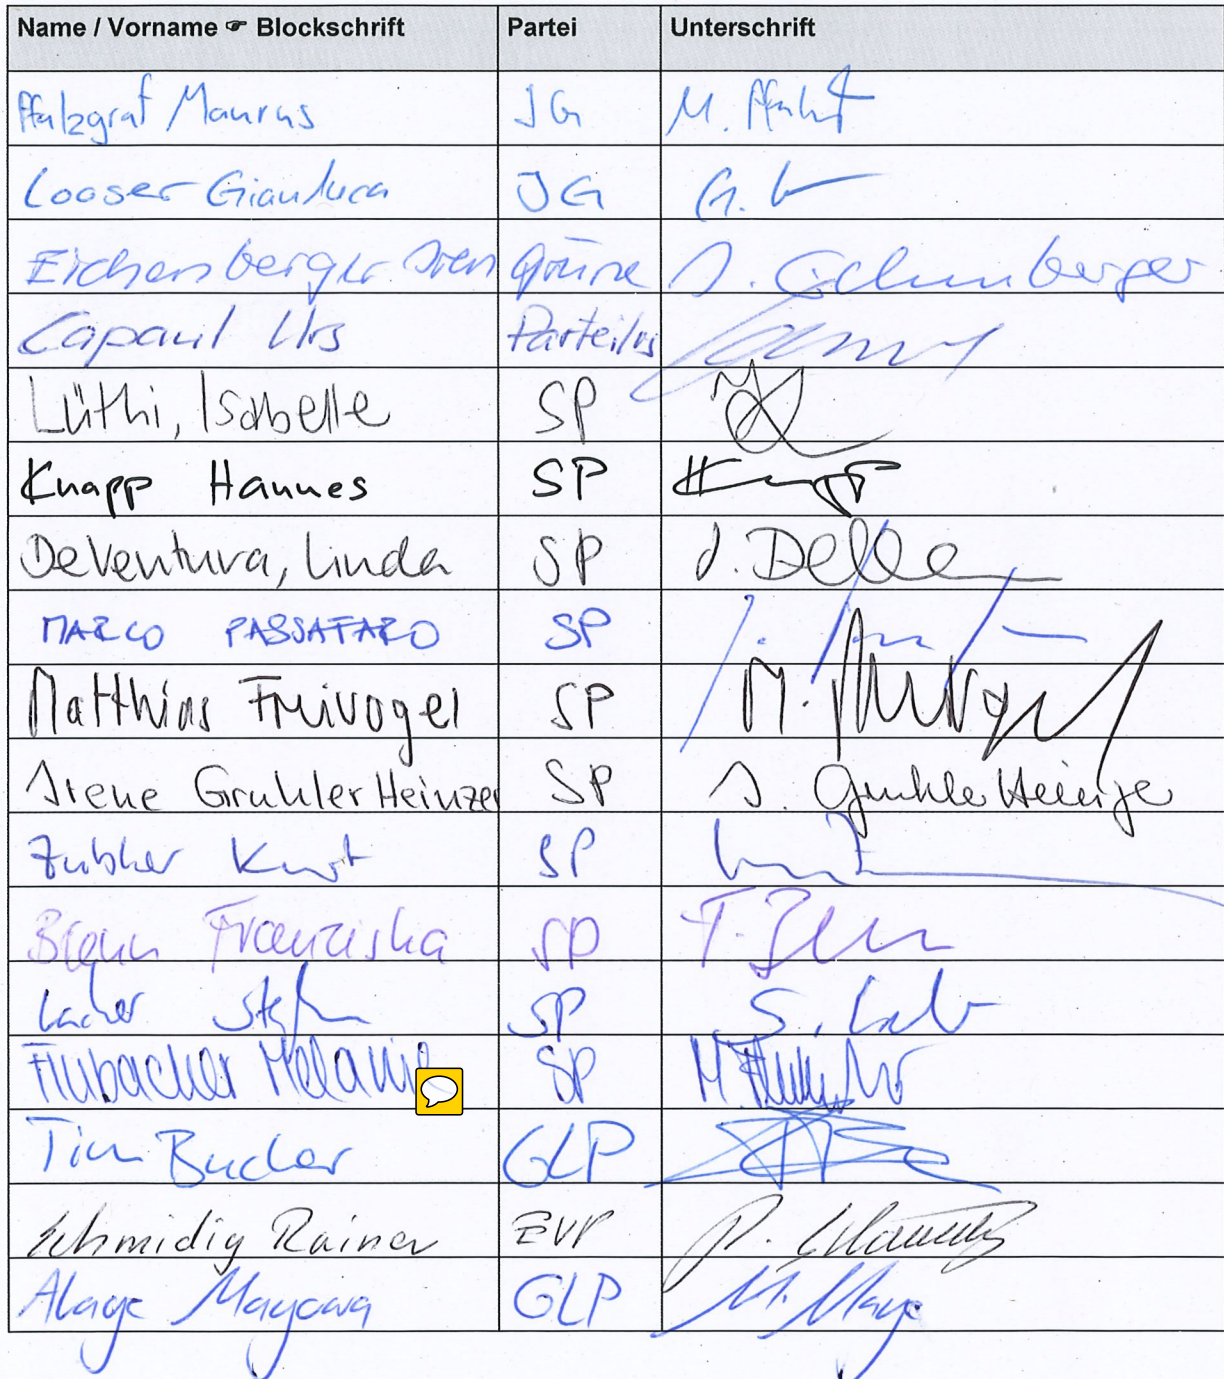 Name / Vorname ☞ Blockschrift Partei Unterschrift
Pfalzgraf Maurus JG M. Pfalzgraf
Looser Gianluca JG G. L
Eichenberger Iren Grüne I. Eichenberger
Capaul Urs Parteilos
Lüthi, Isabelle SP
Knapp Hannes SP H Knapp
De Ventura, Linda SP
MARCO PASSAFARO SP
Matthias Freivogel SP M. Freivogel
Irene Gruhler Heinzer SP I. Gruhler Heinzer
Zubler Kurt SP
Brenn Franziska SP F. Brenn
Lacher Stefan SP S. Lacher
Flubacher Melanie SP M. Flubacher
Tim Bucher GLP
Schmidig Rainer EVP R. Schmidig
Alaye Mayowa GLP M. Alaye